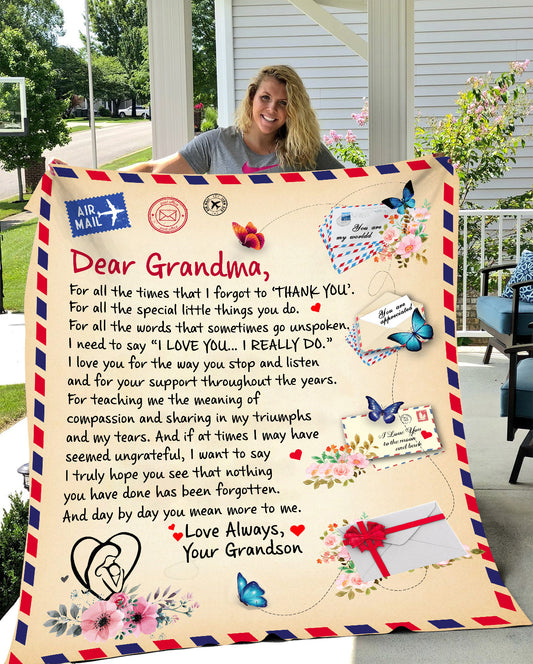 AIR
MAIL
Dear Grandma,
For all the times that I forgot to 'THANK YOU'.
For all the special little things you do.
For all the words that sometimes go unspoken.
I need to say "I LOVE YOU... I REALLY DO."
I love you for the way you stop and listen
and for your support throughout the years.
For teaching me the meaning of
compassion and sharing in my triumphs
and my tears. And if at times I may have
seemed ungrateful, I want to say
I truly hope you see that nothing
you have done has been forgotten.
And day by day you mean more to me.
Love Always,
Your Grandson
You are
my world
You are
appreciated
I Love You
to the moon
and back